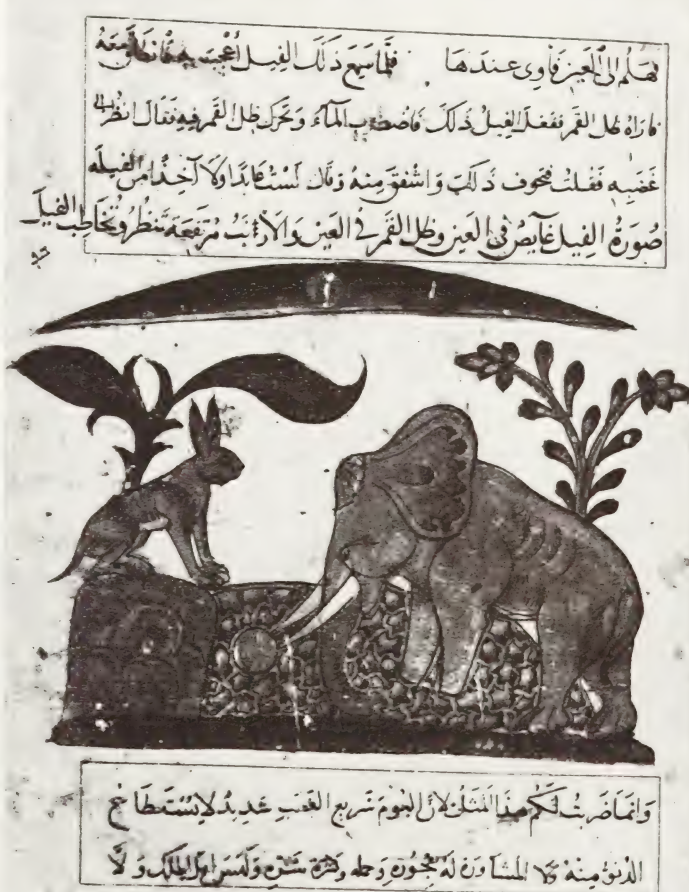 فهلم الى العين فاوى عندها فلما سمع ذلك الفيل اعجب معه
فاراه ظل القمر ففعل الفيل ذلك فاضطرب المآء وتحرك ظل القمر فيه فقال انظر الى
غضبه فقلت فتخوف ذلك واشفق منه وقال لست عايدا ولا آخذا من الفيله
صورة الفيل غايص في العين وظل القمر في العين والارنب مرتفعة تنظر وتخاطب الفيل
وانما ضربت لكم هذا المثل لان البوم سريع الغضب شديد لا يستطاع
الدنو منه ولا لفجوره وحمله وكثرة شره وليس اهل الملك ولا